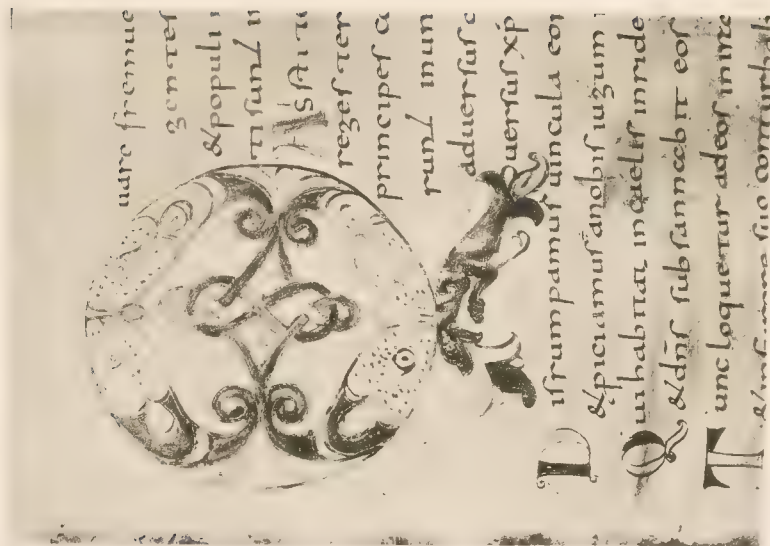 uare fremue
gentes
&populi
ti sunt in
reges ter
principes
runt inun
aduersus
uersus xp
Disrumpamus uincula eor
&piciamus anobis iugum
Quihabitat incaelis inride
&dns subsannabit eos
Tunc loquetur adeos inira